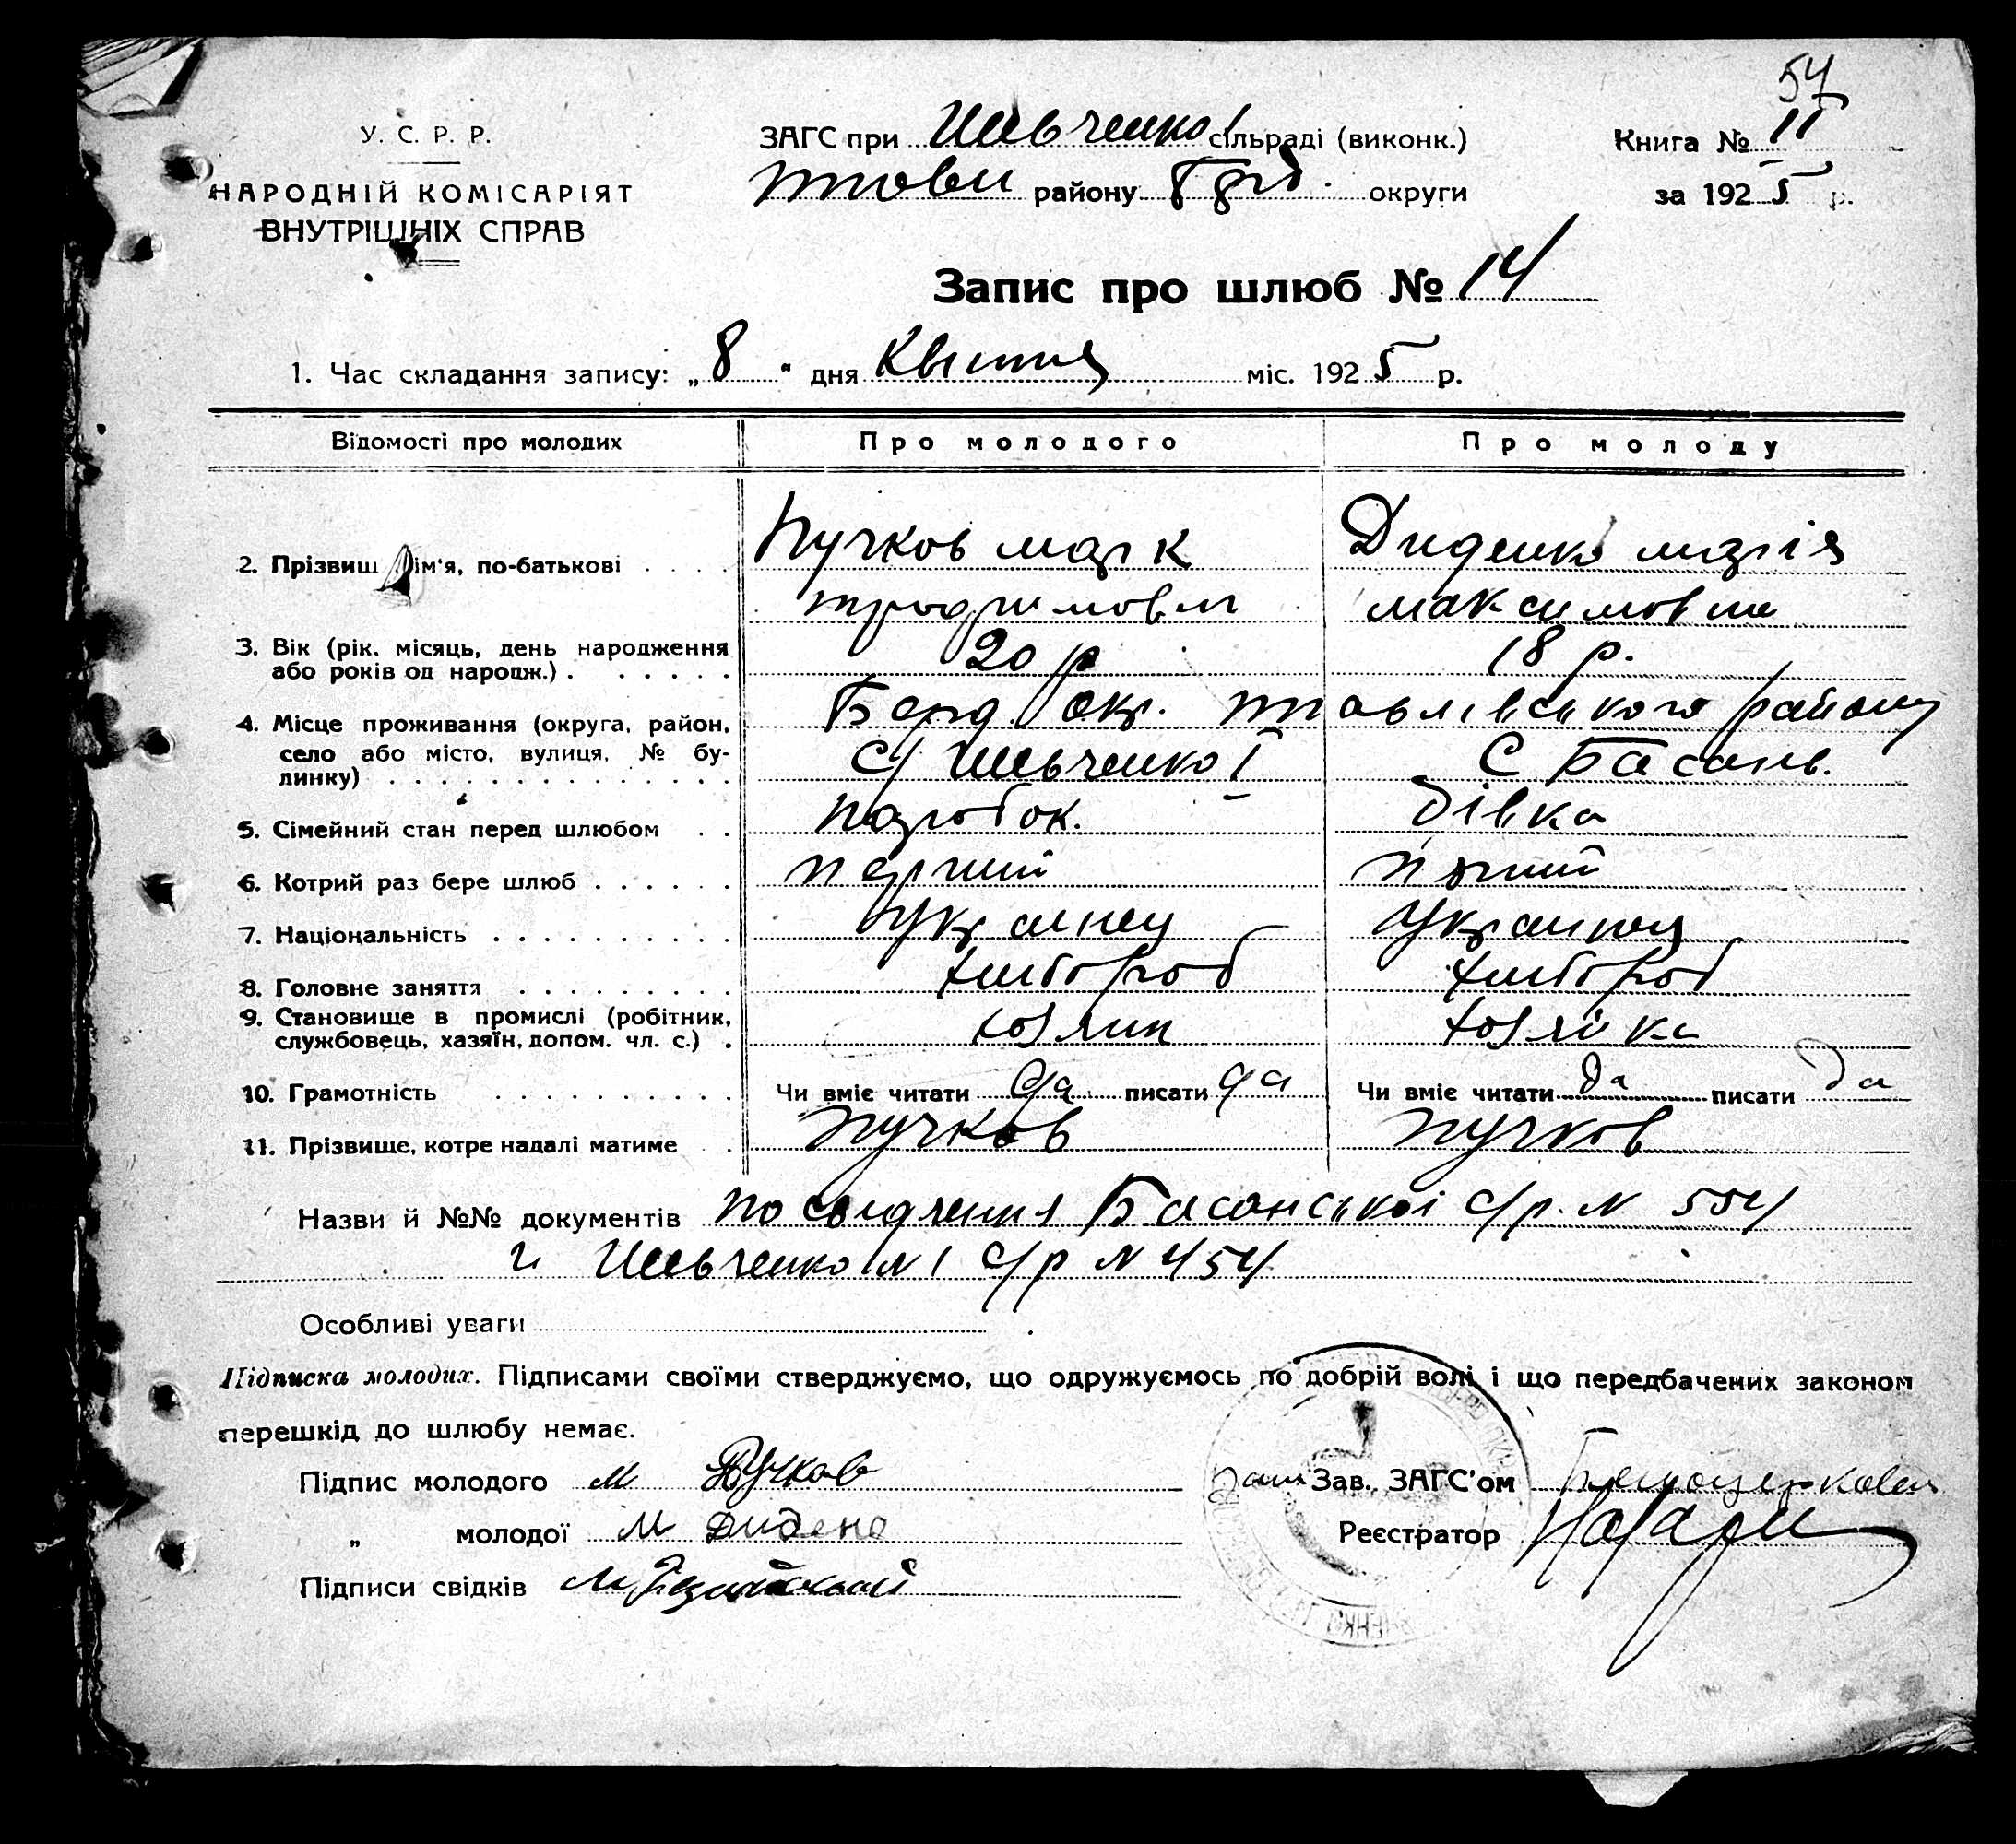 57
У. С. Р. Р.
НАРОДНІЙ КОМІСАРІЯТ
ВНУТРІШНІХ СПРАВ
ЗАГС при Шевченко І сільраді (виконк.)
району Брд. округи
Книга № II
за 1925 р.
Запис про шлюб № 14
1. Час складання запису: „8" дня Квітня міс. 1925 р.
Відомості про молодих Про молодого Про молоду
2. Прізвищ ім'я, по-батькові Пучков марк Диденко марія
трофимович максимовна
3. Вік (рік, місяць, день народження
або років од народж.) 20 р 18 р.
4. Місце проживання (округа, район, Берд. окр. токовського району
село або місто, вулиця, № бу-
динку) С/ Шевченко І С Басань.
5. Сімейний стан перед шлюбом парубок. дівка
6. Котрий раз бере шлюб перший перший
7. Національність Украинец Украинка
8. Головне заняття хлібороб хлібороб
9. Становище в промислі (робітник,
службовець, хазяїн, допом. чл. с.) хозяин хозяйка
10. Грамотність Чи вміє читати да писати да Чи вміє читати да писати да
11. Прізвище, котре надалі матиме Пучков Пучков
Назви й №№ документів посвідчення Басанської с/р. N 554
и Шевченко N 1 с/р N 454
Особливі уваги
Підписка молодих. Підписами своїми стверджуємо, що одружуємось по добрій волі і що передбачених законом
перешкід до шлюбу немає.
Підпис молодого М Пучков
„ молодої М Дидено
Підписи свідків
Зав. ЗАГС'ом
Реєстратор